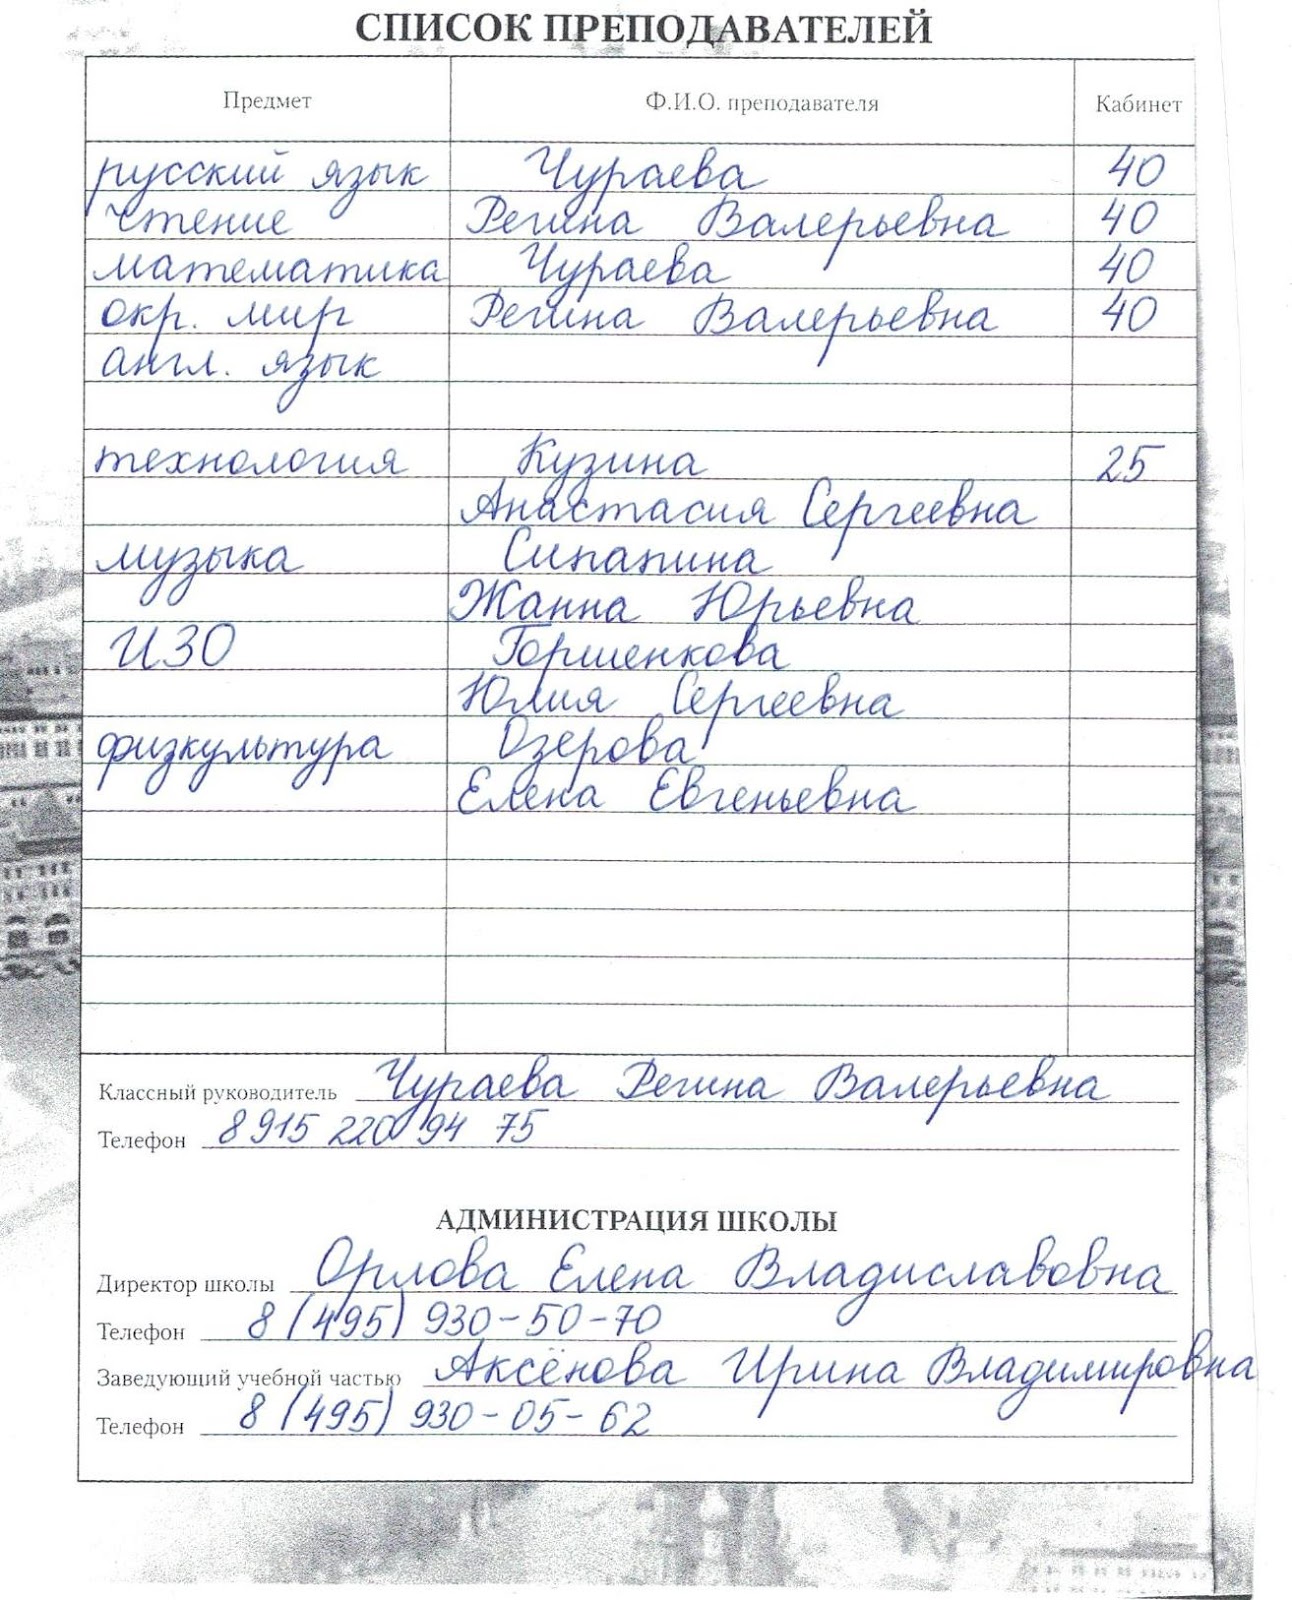 СПИСОК ПРЕПОДАВАТЕЛЕЙ
Предмет Ф.И.О. преподавателя Кабинет
русский язык Чураева 40
чтение Регина Валерьевна 40
математика Чураева 40
окр. мир Регина Валерьевна 40
англ. язык
технология Кузина 25
Анастасия Сергеевна
музыка Сипапина
Жанна Юрьевна
ИЗО Горшенкова
Юлия Сергеевна
физкультура Озерова
Елена Евгеньевна
Классный руководитель Чураева Регина Валерьевна
Телефон 8 915 220 94 75
АДМИНИСТРАЦИЯ ШКОЛЫ
Директор школы Орлова Елена Владиславовна
Телефон 8 (495) 930-50-70
Заведующий учебной частью Аксёнова Ирина Владимировна
Телефон 8 (495) 930-05-62